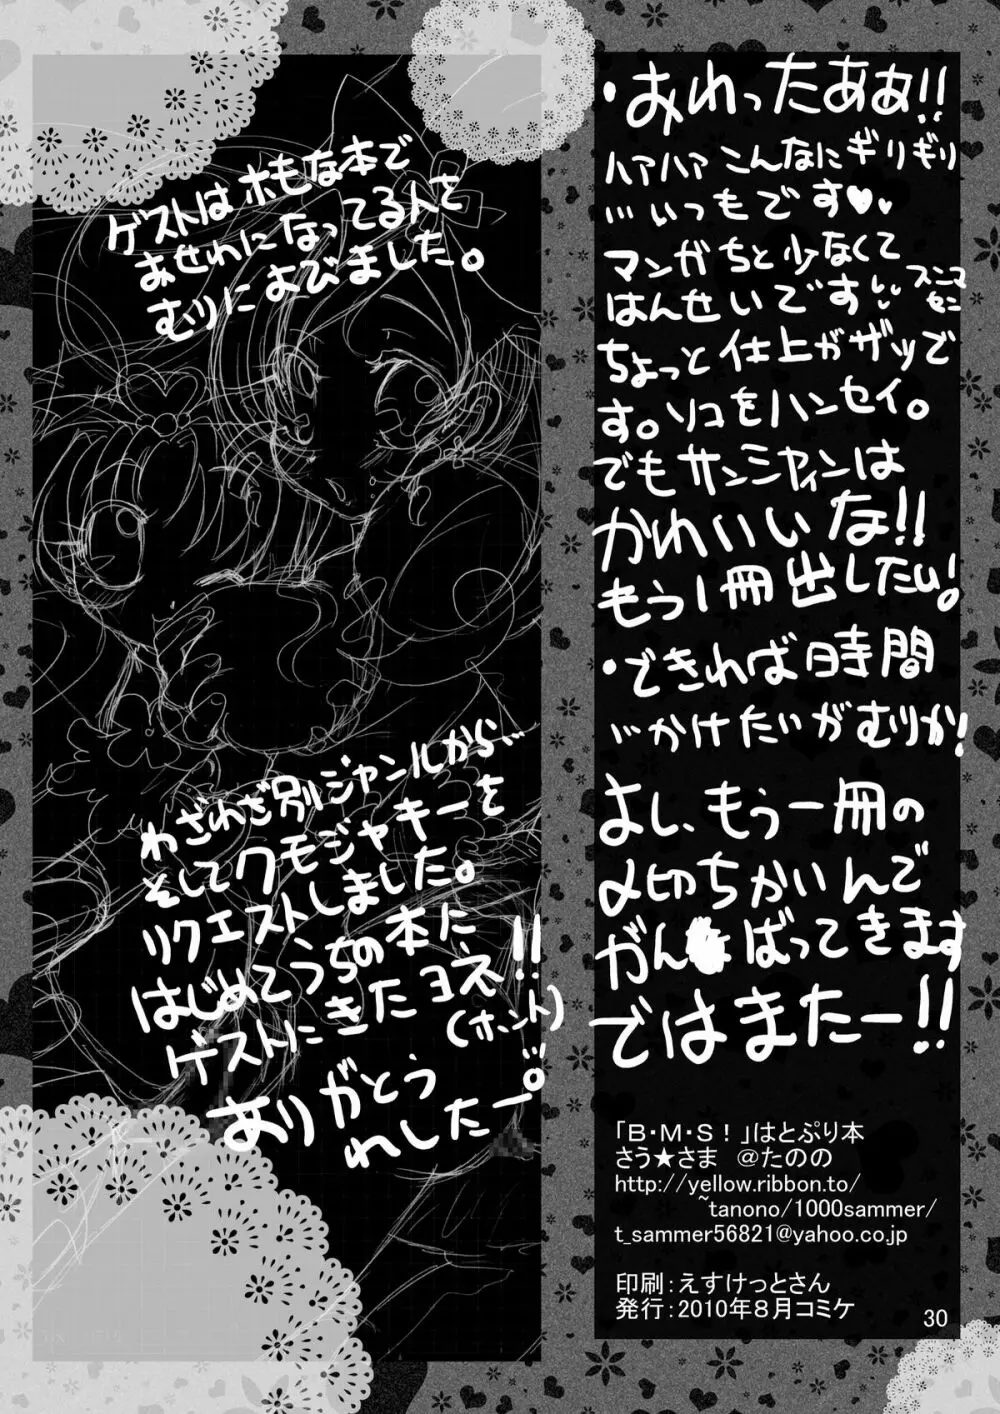 ・おわったあぁ!!
ハアハァ こんなにギリギリ
…いつもです♥♥
マンガちと少なくて
はんせいです…
スニマセニ
ちょっと仕上がザツで
す。ソコをハンセイ。
でもサンシャインは
かわいいな!!
もう1冊出したい!
・できれば時間
…かけたいがむりか!
よし、もう一冊の
〆切ちかいんで
がんばってきます
ではまたー!!
「B・M・S!」はとぷり本
さう★さま @たのの
http://yellow.ribbon.to/
~tanono/1000sammer/
t_sammer56821@yahoo.co.jp
印刷:えすけっとさん
発行:2010年8月コミケ
30
ゲストはホモな本で
おせわになってる人を
むりによびました。
わざわざ別ジャンルから…
そしてクモジャキーを
リクエストしました。
はじめてうちの本た
ゲストにきたヨネ!!
(ホント)
ありがとう
れしたー。